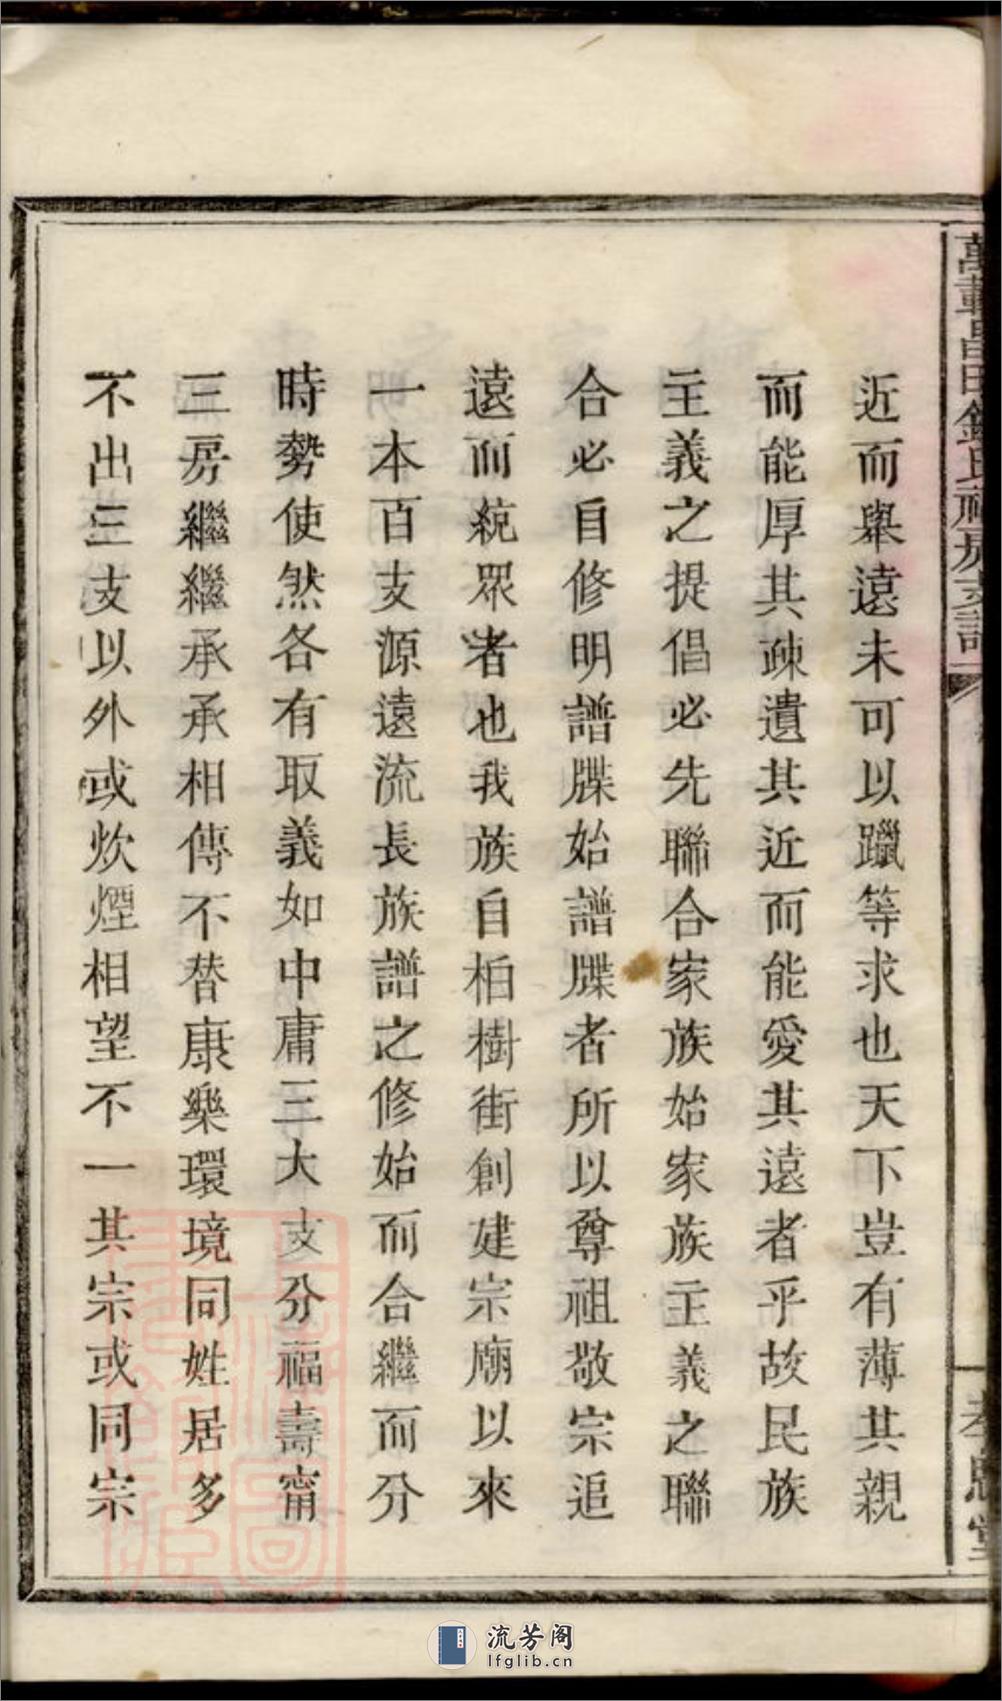 萬載昌田鍾氏福房支譜
孝思堂
近而舉遠未可以躐等求也天下豈有薄其親
而能厚其疎遺其近而能愛其遠者乎故民族
主義之提倡必先聯合家族始家族主義之聯
合必自修明譜牒始譜牒者所以尊祖敬宗追
遠而統眾者也我族自柏樹街創建宗廟以來
一本百支源遠流長族譜之修始而合繼而分
時勢使然各有取義如中庸三大支分福壽甯
三房繼繼承承相傳不替康樂環境同姓居多
不出三支以外或炊煙相望不一其宗或同宗
流芳阁
lfglib.cn